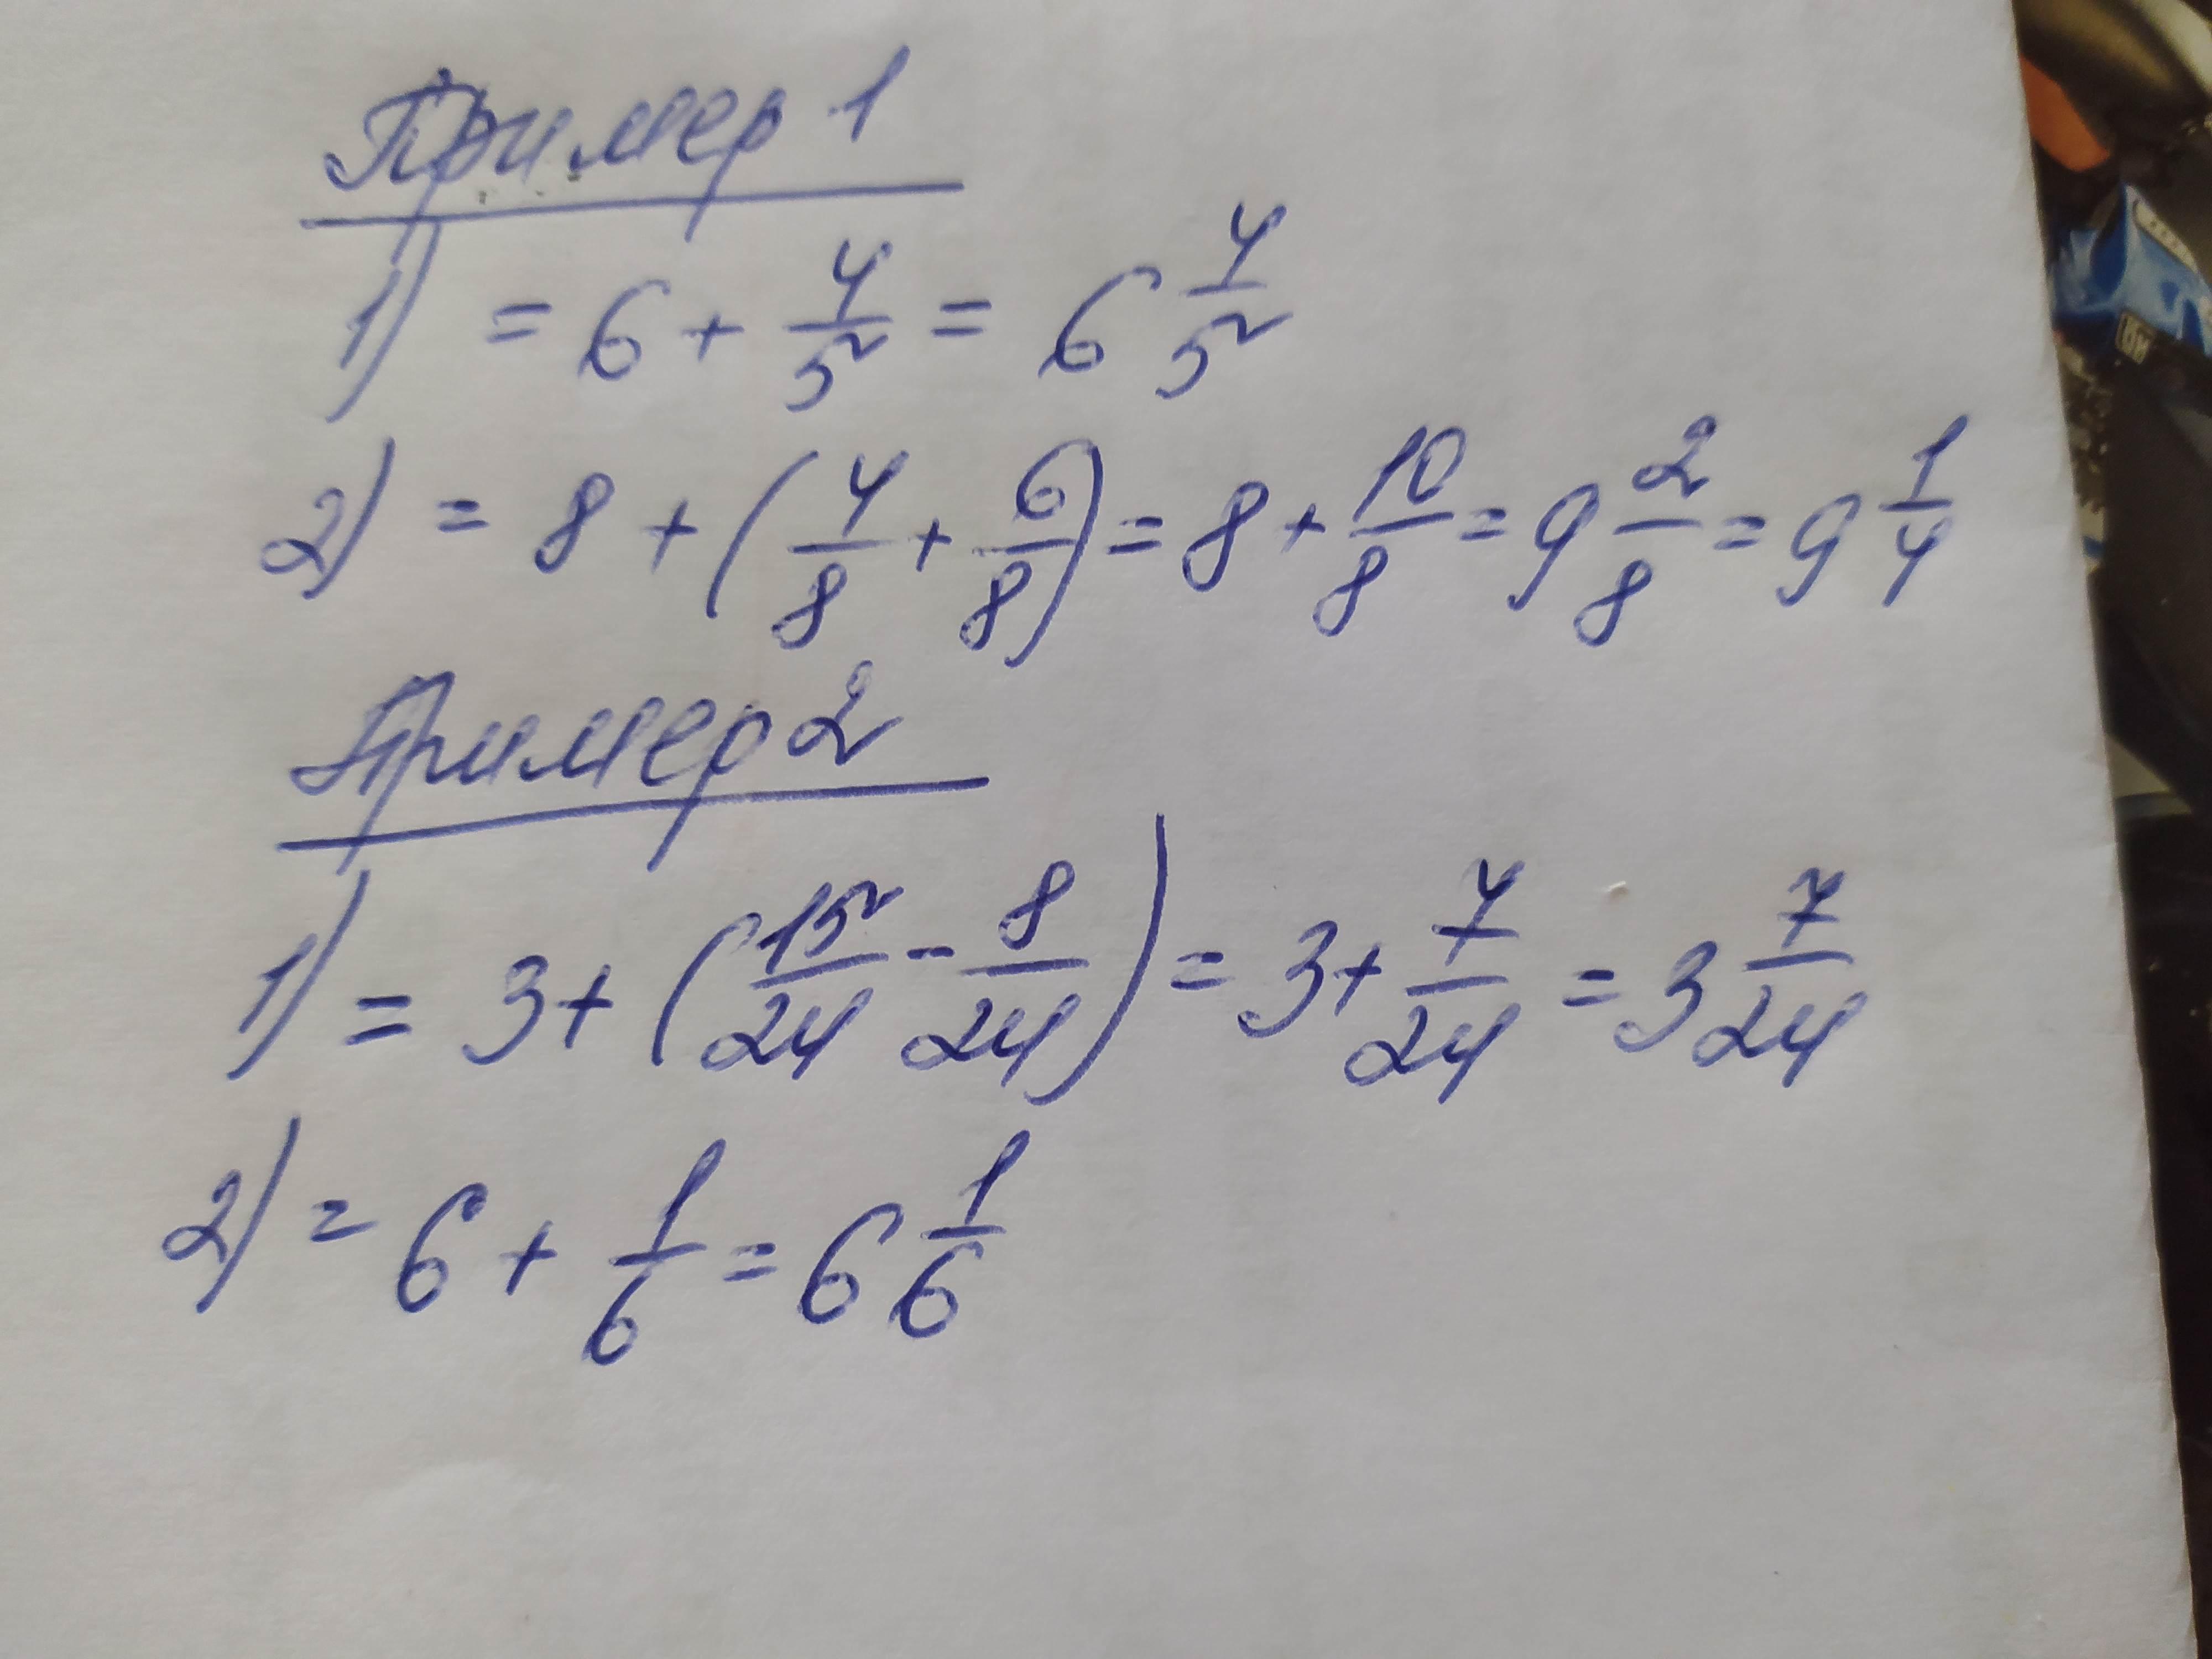 Пример 1
1) = 6 + 4/5 = 6 4/5
2) = 8 + (4/8 + 6/8) = 8 + 10/8 = 9 2/8 = 9 1/4
Пример 2
1) = 3 + (15/24 - 8/24) = 3 + 7/24 = 3 7/24
2) = 6 + 1/6 = 6 1/6